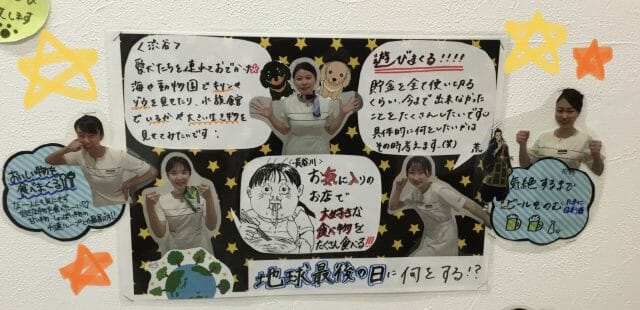 します
〈渋谷〉
愛犬たちを連れておでかけ
海や動物園でキリンや
ゾウを見せたり、水族館
でいるかや大きい生き物を
見せてみたいです！
遊びまくる!!!!
貯金を全て使い切る
くらい、今まで出来なかった
ことをたくさんしたいです。
具体的に何をしたいかは
その時考えます。(笑)
おいしい物を
食べまくる!!
〈長谷川〉
お気に入りの
お店で
大好きな
食べ物を
たくさん食べる!!!
気絶するまで
ビールをのむ
たまに
日本酒
地球最後の日に何をする!?